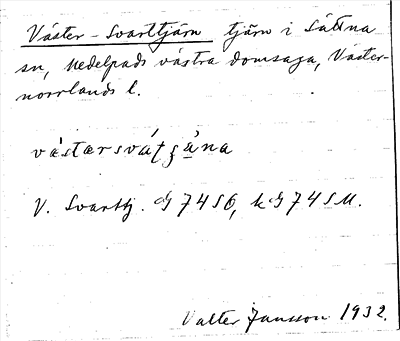 Väster-Svarttjärn tjärn i Sättna
sn, Medelpads västra domsaga, Väster-
norrlands l.
V. Svarttj. G 74 SÖ, kG 74 SU.
Valter Jansson 1932.